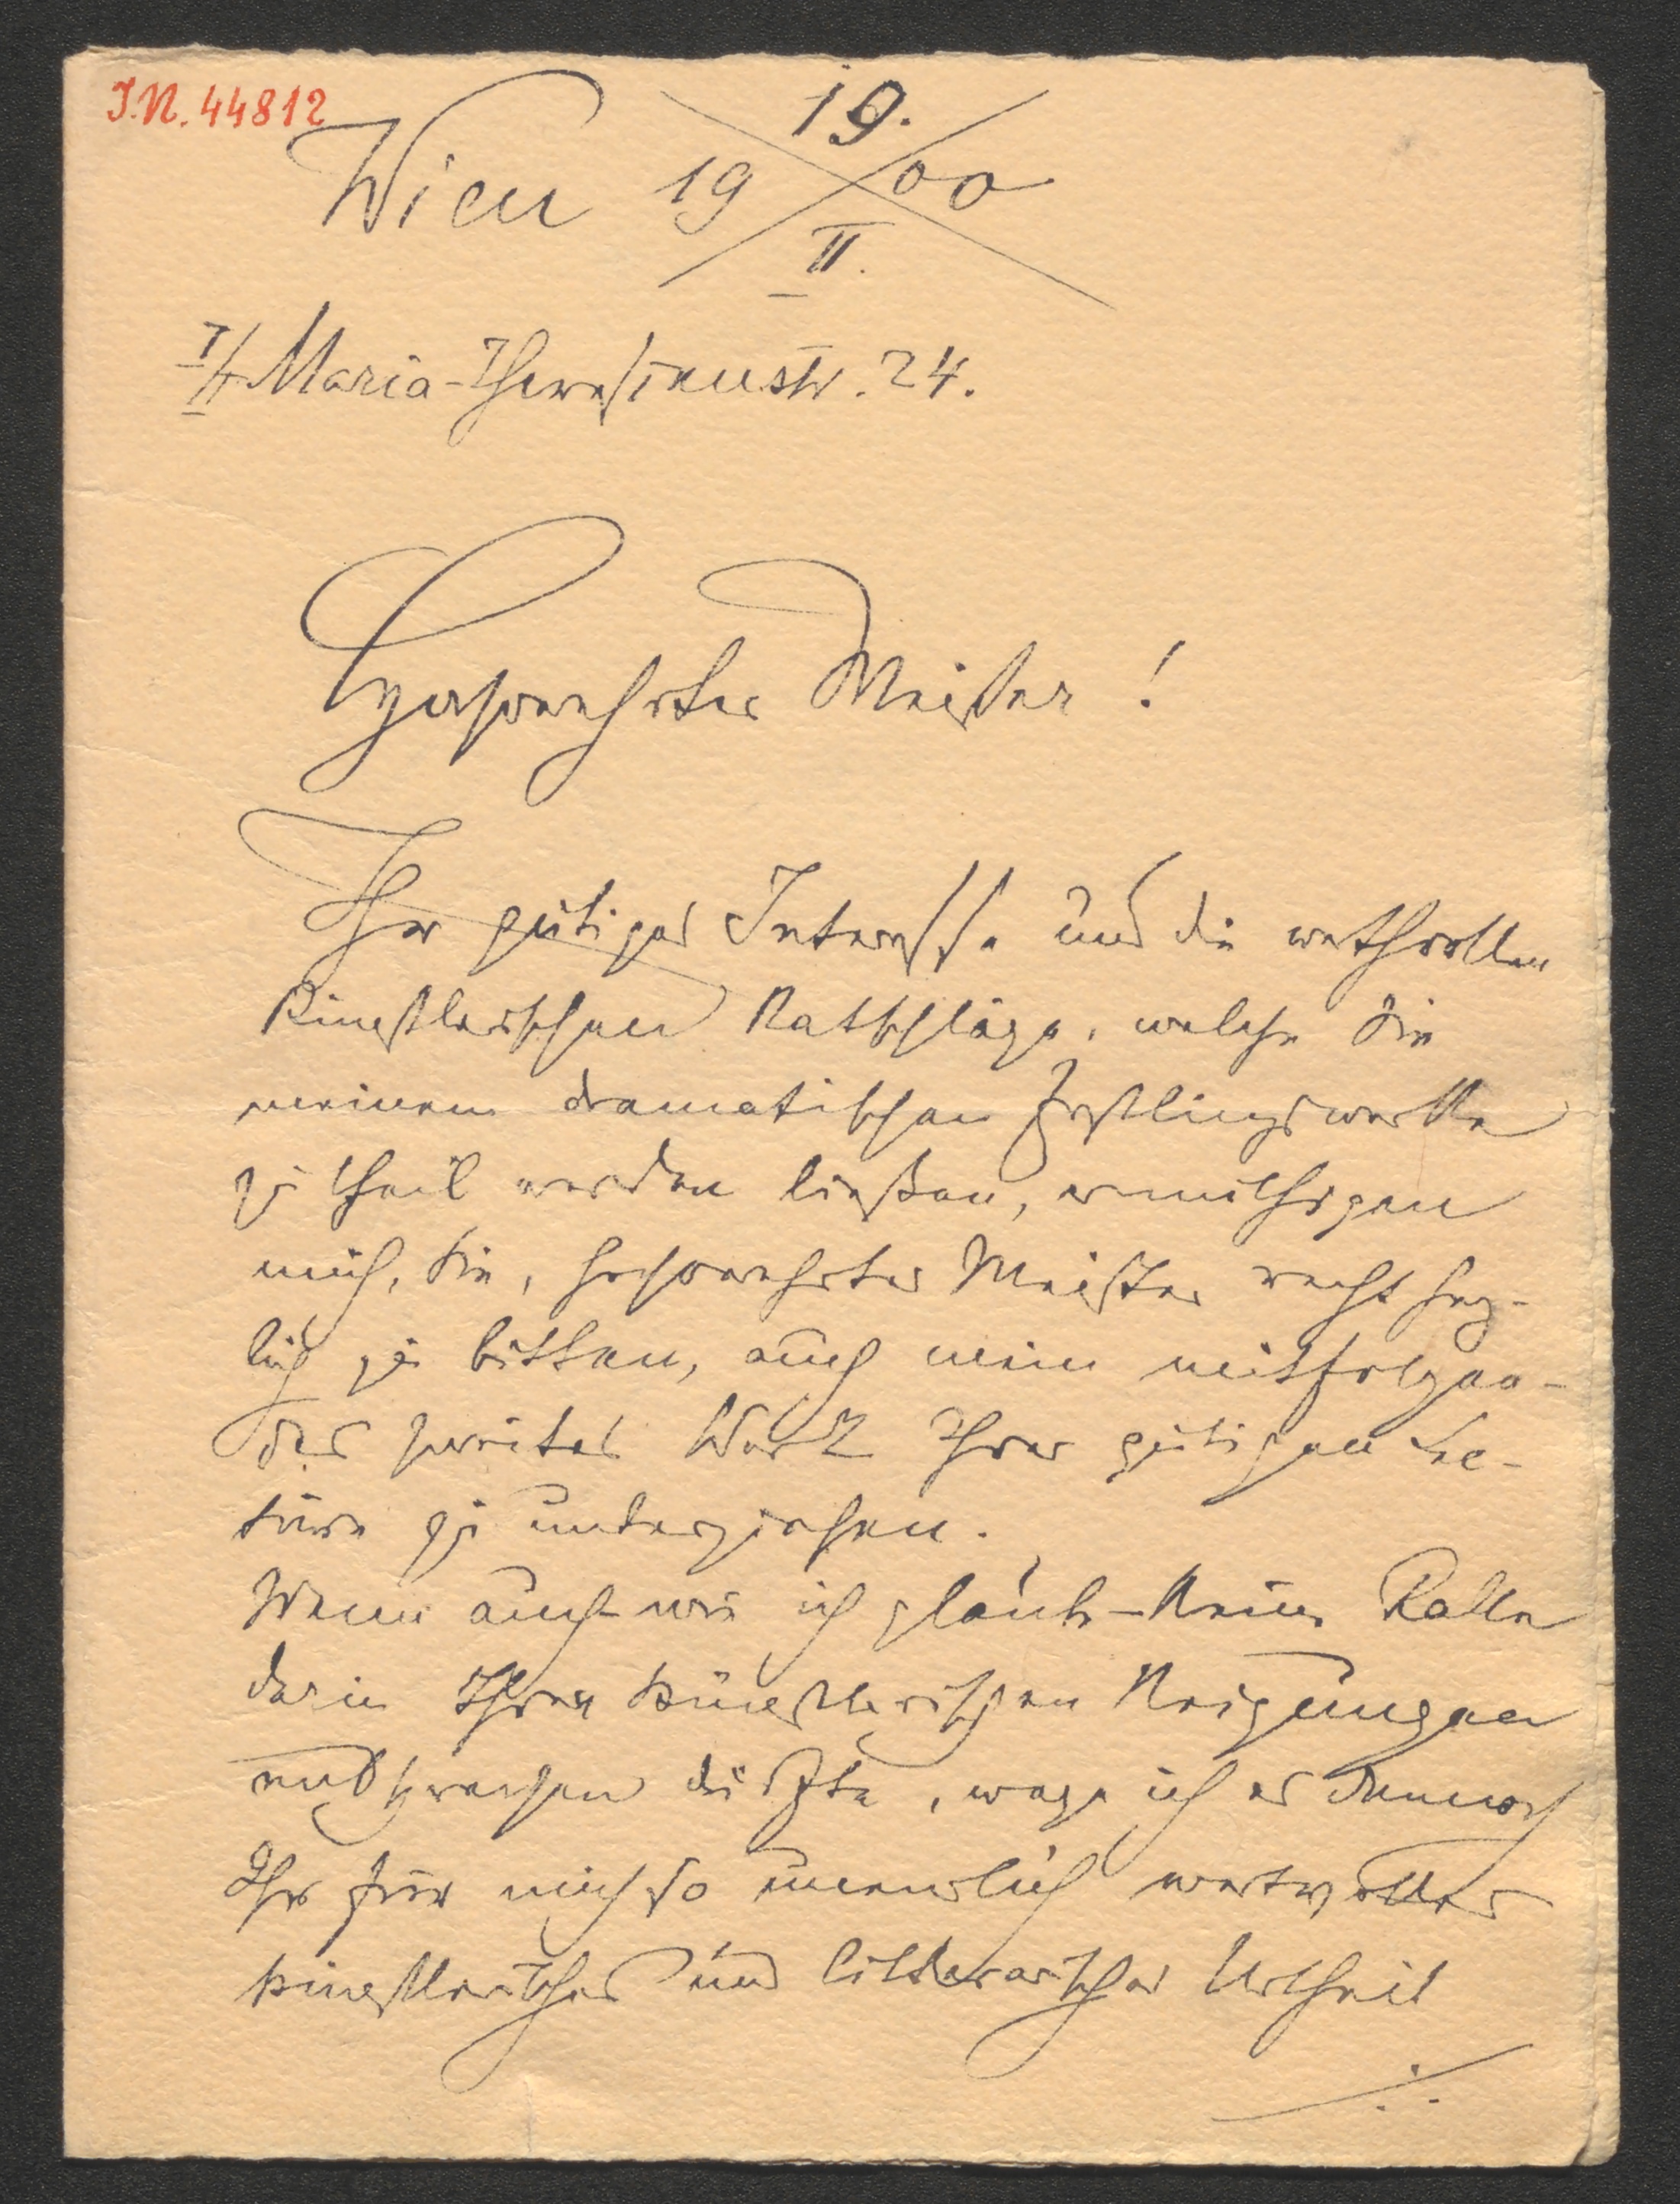 J.N. 44812
19.
Wien 19 00
II.
I/II Maria-Theresienstr. 24.
Hochverehrter Meister!
Ihr gütiges Interesse und die wethvollen
künstlerischen Ratschläge, welche Sie
meinem dramatischen Erstlingswerke
zu theil werden ließen, ermuthigen
mich, Sie, hochverehrter Meister recht herz-
lich zu bitten, auch mein mitfolgen-
des zweites Werk Ihrer gütigen Lec-
türe zu unterziehen.
Wenn auch - wie ich glaube - keine Rolle
darin Ihren künstlerischen Neigungen
entsprechen dürfte, wage ich es dennoch
Ihr für mich so unendlich wertvolles
künstlerisches und litterarisches Urtheil
./.